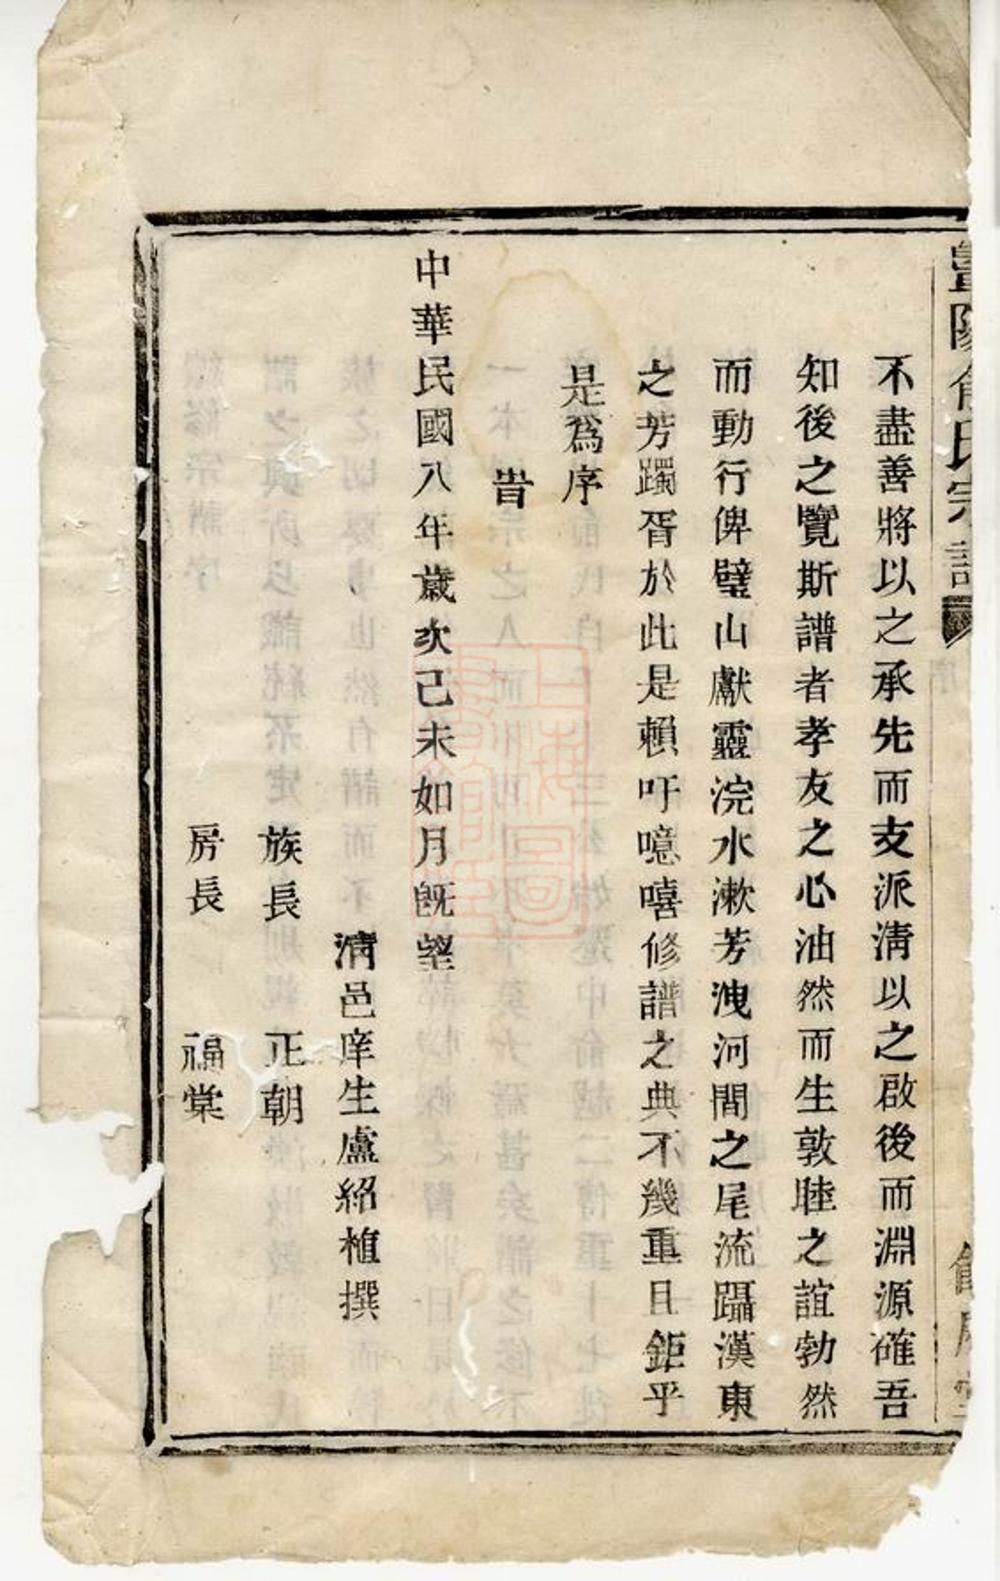 俞氏宗譜
不盡善將以之承先而支派淸以之啟後而淵源確吾
知後之覽斯譜者孝友之心油然而生敦睦之誼勃然
而動行俾璧山獻靈浣水漱芳洩河間之尾流躡漢東
之芳躅胥於此是賴吁噫嘻修譜之典不幾重且鉅乎
是爲序
旹
中華民國八年歲次己未如月旣望
淸邑庠生盧紹植撰
族長 正朝
房長 福棠